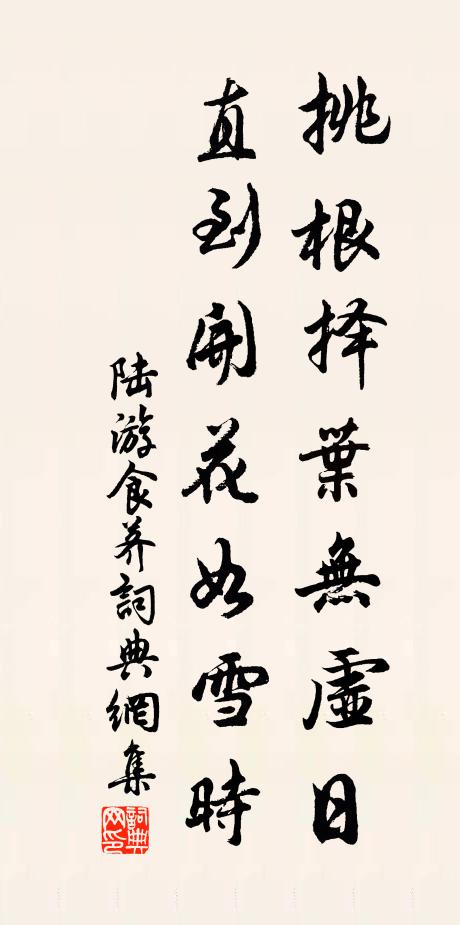 挑根择葉無虛日
直到開花如雪時
陆游食荠詞典網集
詞典网印